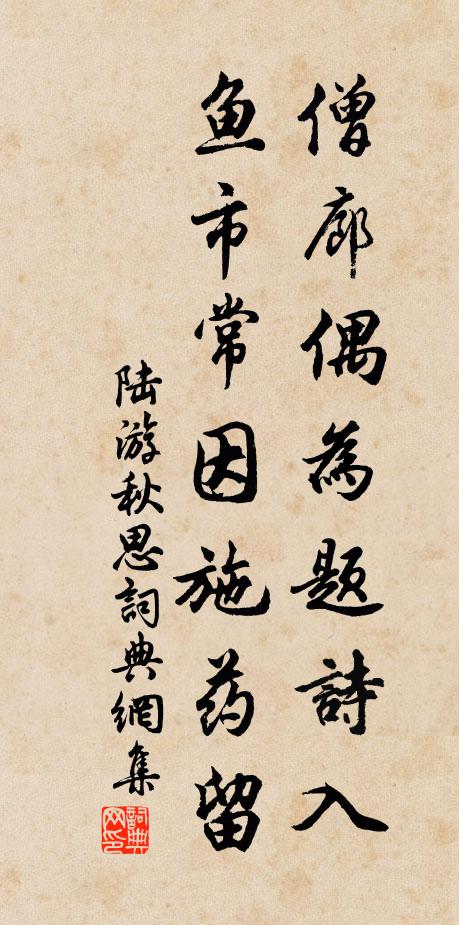 僧廊偶為题詩入
鱼市常因施药留
陆游秋思詞典網集
詞典网印